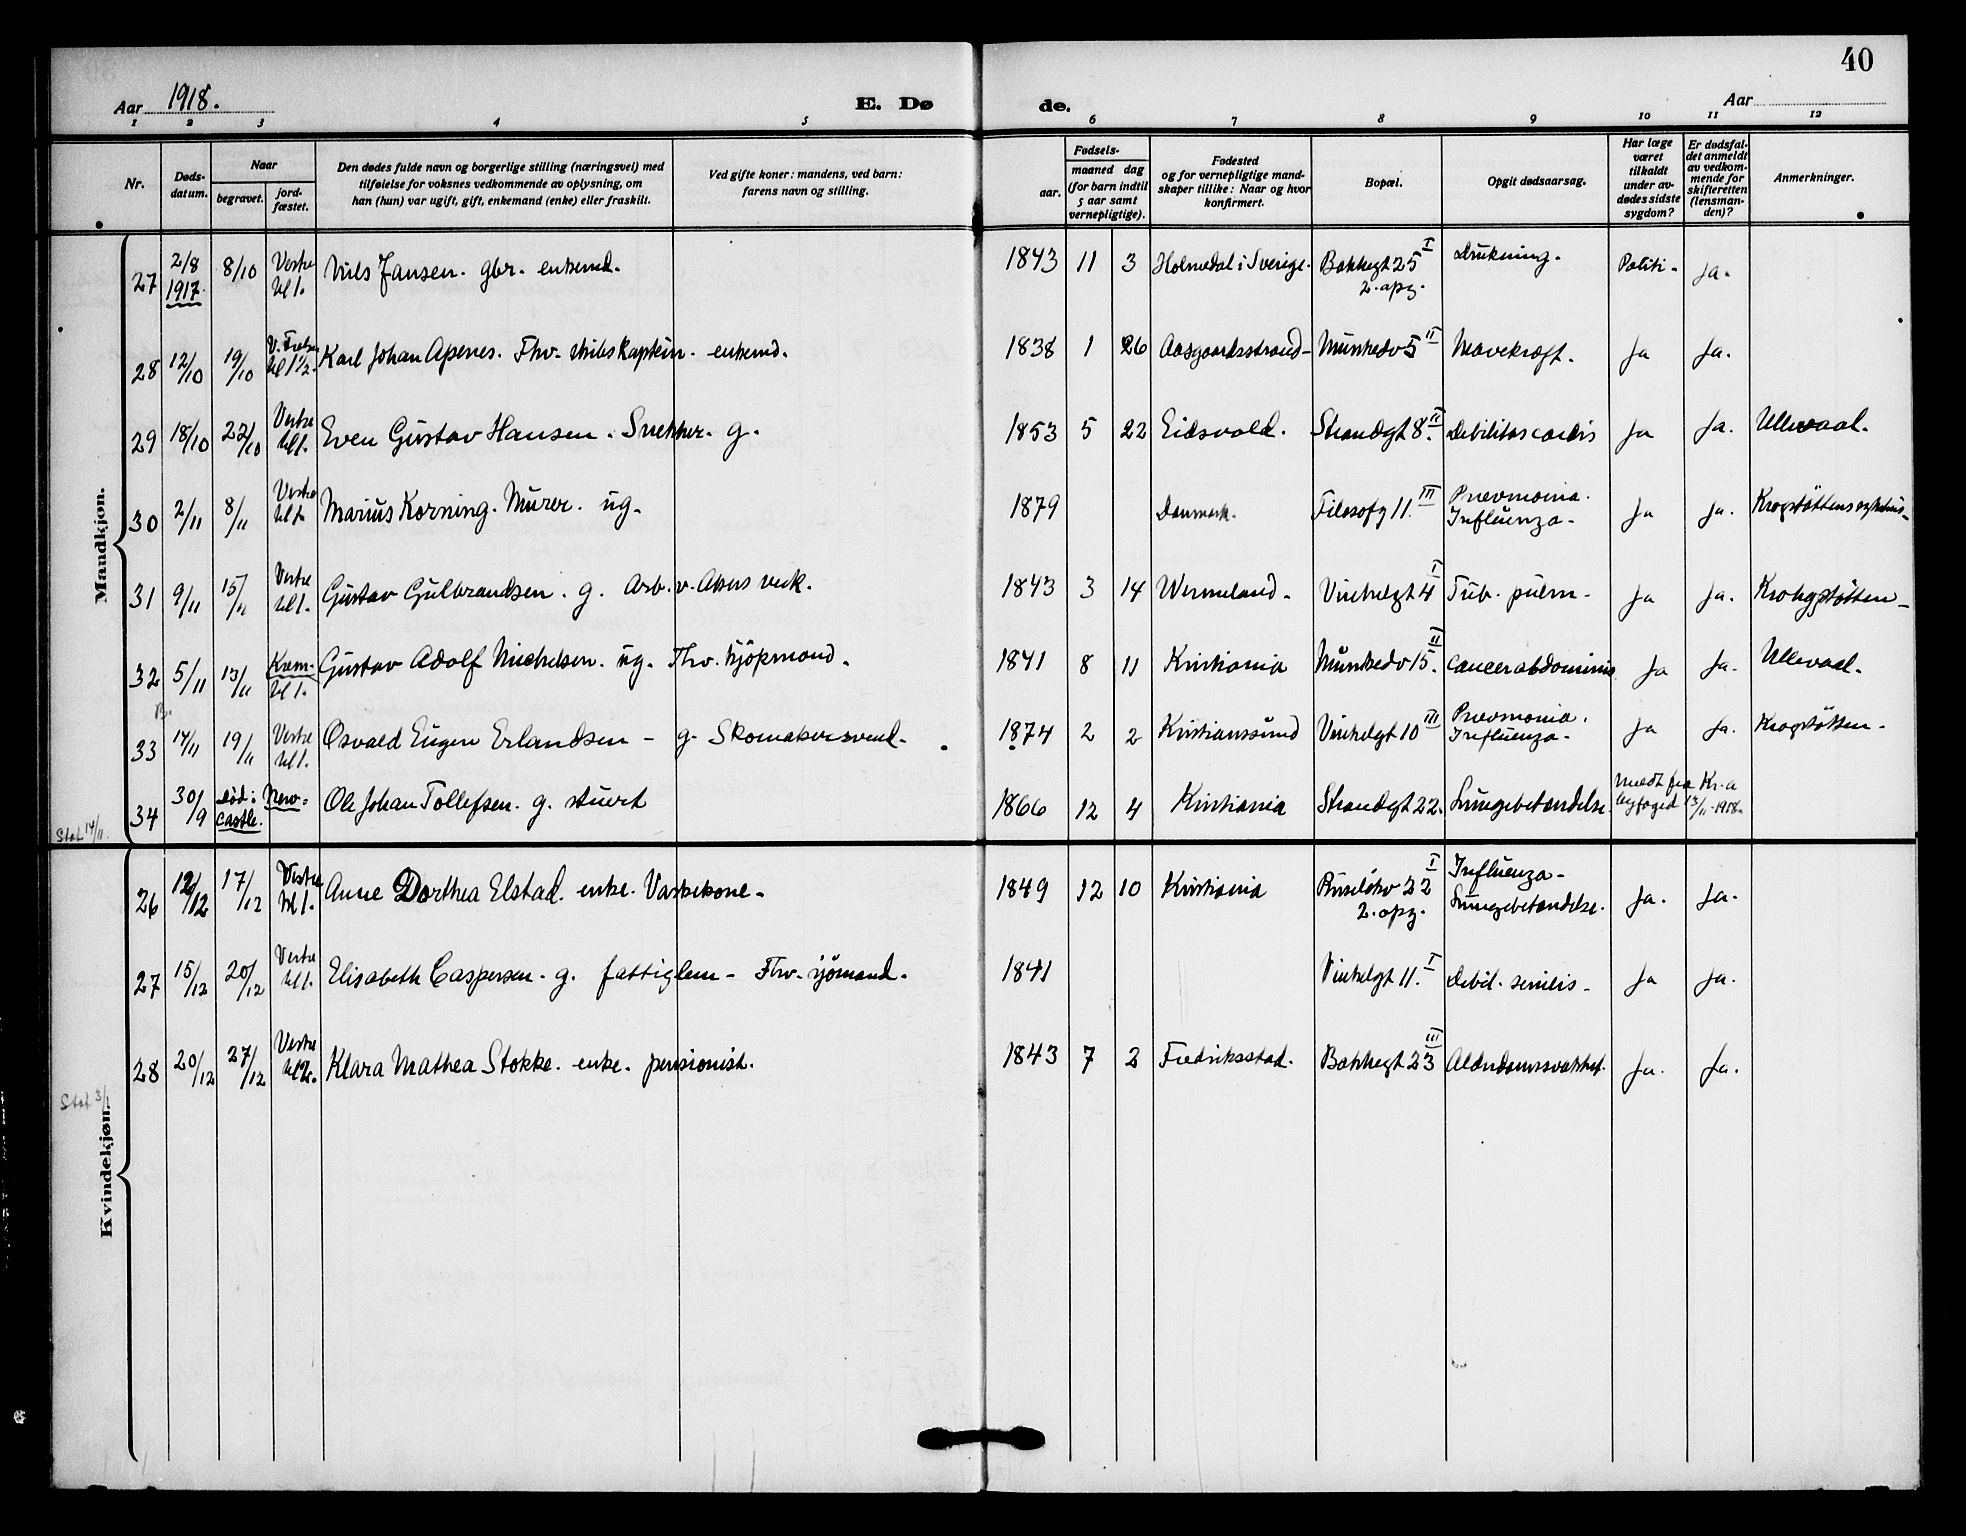 40
Aar 1918.
E. Dø
de.
Aar
1 2 3 4 5 6 7 8 9 10 11 12
Nr.
Døds-
datum.
Naar
begravet.
jord-
fæstet.
Den dødes fulde navn og borgerlige stilling (næringsvei) med
tilføielse for voksnes vedkommende av oplysning, om
han (hun) var ugift, gift, enkemand (enke) eller fraskilt.
Ved gifte koner: mandens, ved barn:
farens navn og stilling.
Fødsels-
aar.
maaned dag
(for barn indtil
5 aar samt
vernepligtige).
Fødested
og for vernepligtige mand-
skaper tillike: Naar og hvor
konfirmert.
Bopæl.
Opgit dødsaarsag.
Har læge
været
tilkaldt
under av-
dødes sidste
sygdom?
Er dødsfal-
det anmeldt
av vedkom-
mende for
skifteretten
(lensman-
den)?
Anmerkninger.
Mandkjøn.
27 2/8 1917. 8/10 Vestre kl 1. Nils Jansen. gbr. enkemd. 1843 11 3 Holmedal i Sverige. Bakkegt 25 I 2. opg. Drukning. Politi. ja.
28 12/10 19/10 kl 1 1/2. Karl Johan Apenes. Fhv. skibskaptein. enkemd. 1838 1 26 Aasgaardsstrand Munkedv 5 II Mavekræft. Ja Ja.
29 18/10 22/10 Vestre kl 1. Even Gustav Hansen. Snekker. g. 1853 5 22 Eidsvold. Strandgt 8. II Debilitas cordis Ja Ja. Ullevaal.
30 2/11 8/11 Vestre kl 1. Marius Korning. Murer. ug. 1879 Danmark. Filosofg 11. III Pnevmonia. Influenza. Ja Ja. Krogstøttens sykehus.
31 9/11 15/11 Vestre kl 1. Gustav Gulbrandsen. g. Arb. v. Akers verk. 1843 3 14 Wermeland. Vinkelgt 4 I Tub. pulm. Ja Ja. Krohgstøtten
32 5/11 13/11 Krem. kl 1. Gustav Adolf Michelsen. ug. Fhv. kjøpmand. 1841 8 11 Kristiania Munkedv 15. II Cancer abdominis Ja Ja. Ullevaal.
33 14/11 19/11 Vestre kl 1. Osvald Eugen Erlandsen - g. Skomakersvend. 1874 2 2 Kristianssund Vinkelgt 10 III Pnevmonia. Influenza. Ja Ja. Krogstøtten.
34 30/9 død i New-castle. Ole Johan Tollefsen. g. stuert 1866 12 4 Kristiania Strandgt 22. Lungebetændelse meldt fra Kr.a byfoged 13/11-1918.
Stat 14/11.
Kvindekjøn.
26 12/12 17/12 Vestre kl 1. Anne Dorthea Elstad. enke. Vaskekone. 1849 12 10 Kristiania Ruseløkv 22 I 2. opg. Influenza - Lungebetændelse. Ja. Ja.
27 15/12 20/12 Vestre kl 1. Elisabeth Caspersen. g. fattiglem - Fhv. sjømand. 1841 Vinkelgt 11. I Debil. senilis. Ja Ja.
28 20/12 27/12 Vestre Klara Mathea Stokke. enke. pensionist. 1843 7 2 Fredriksstad. Bakkegt 23 III Alderdomssvakhet. Ja. Ja.
Stat 3/1